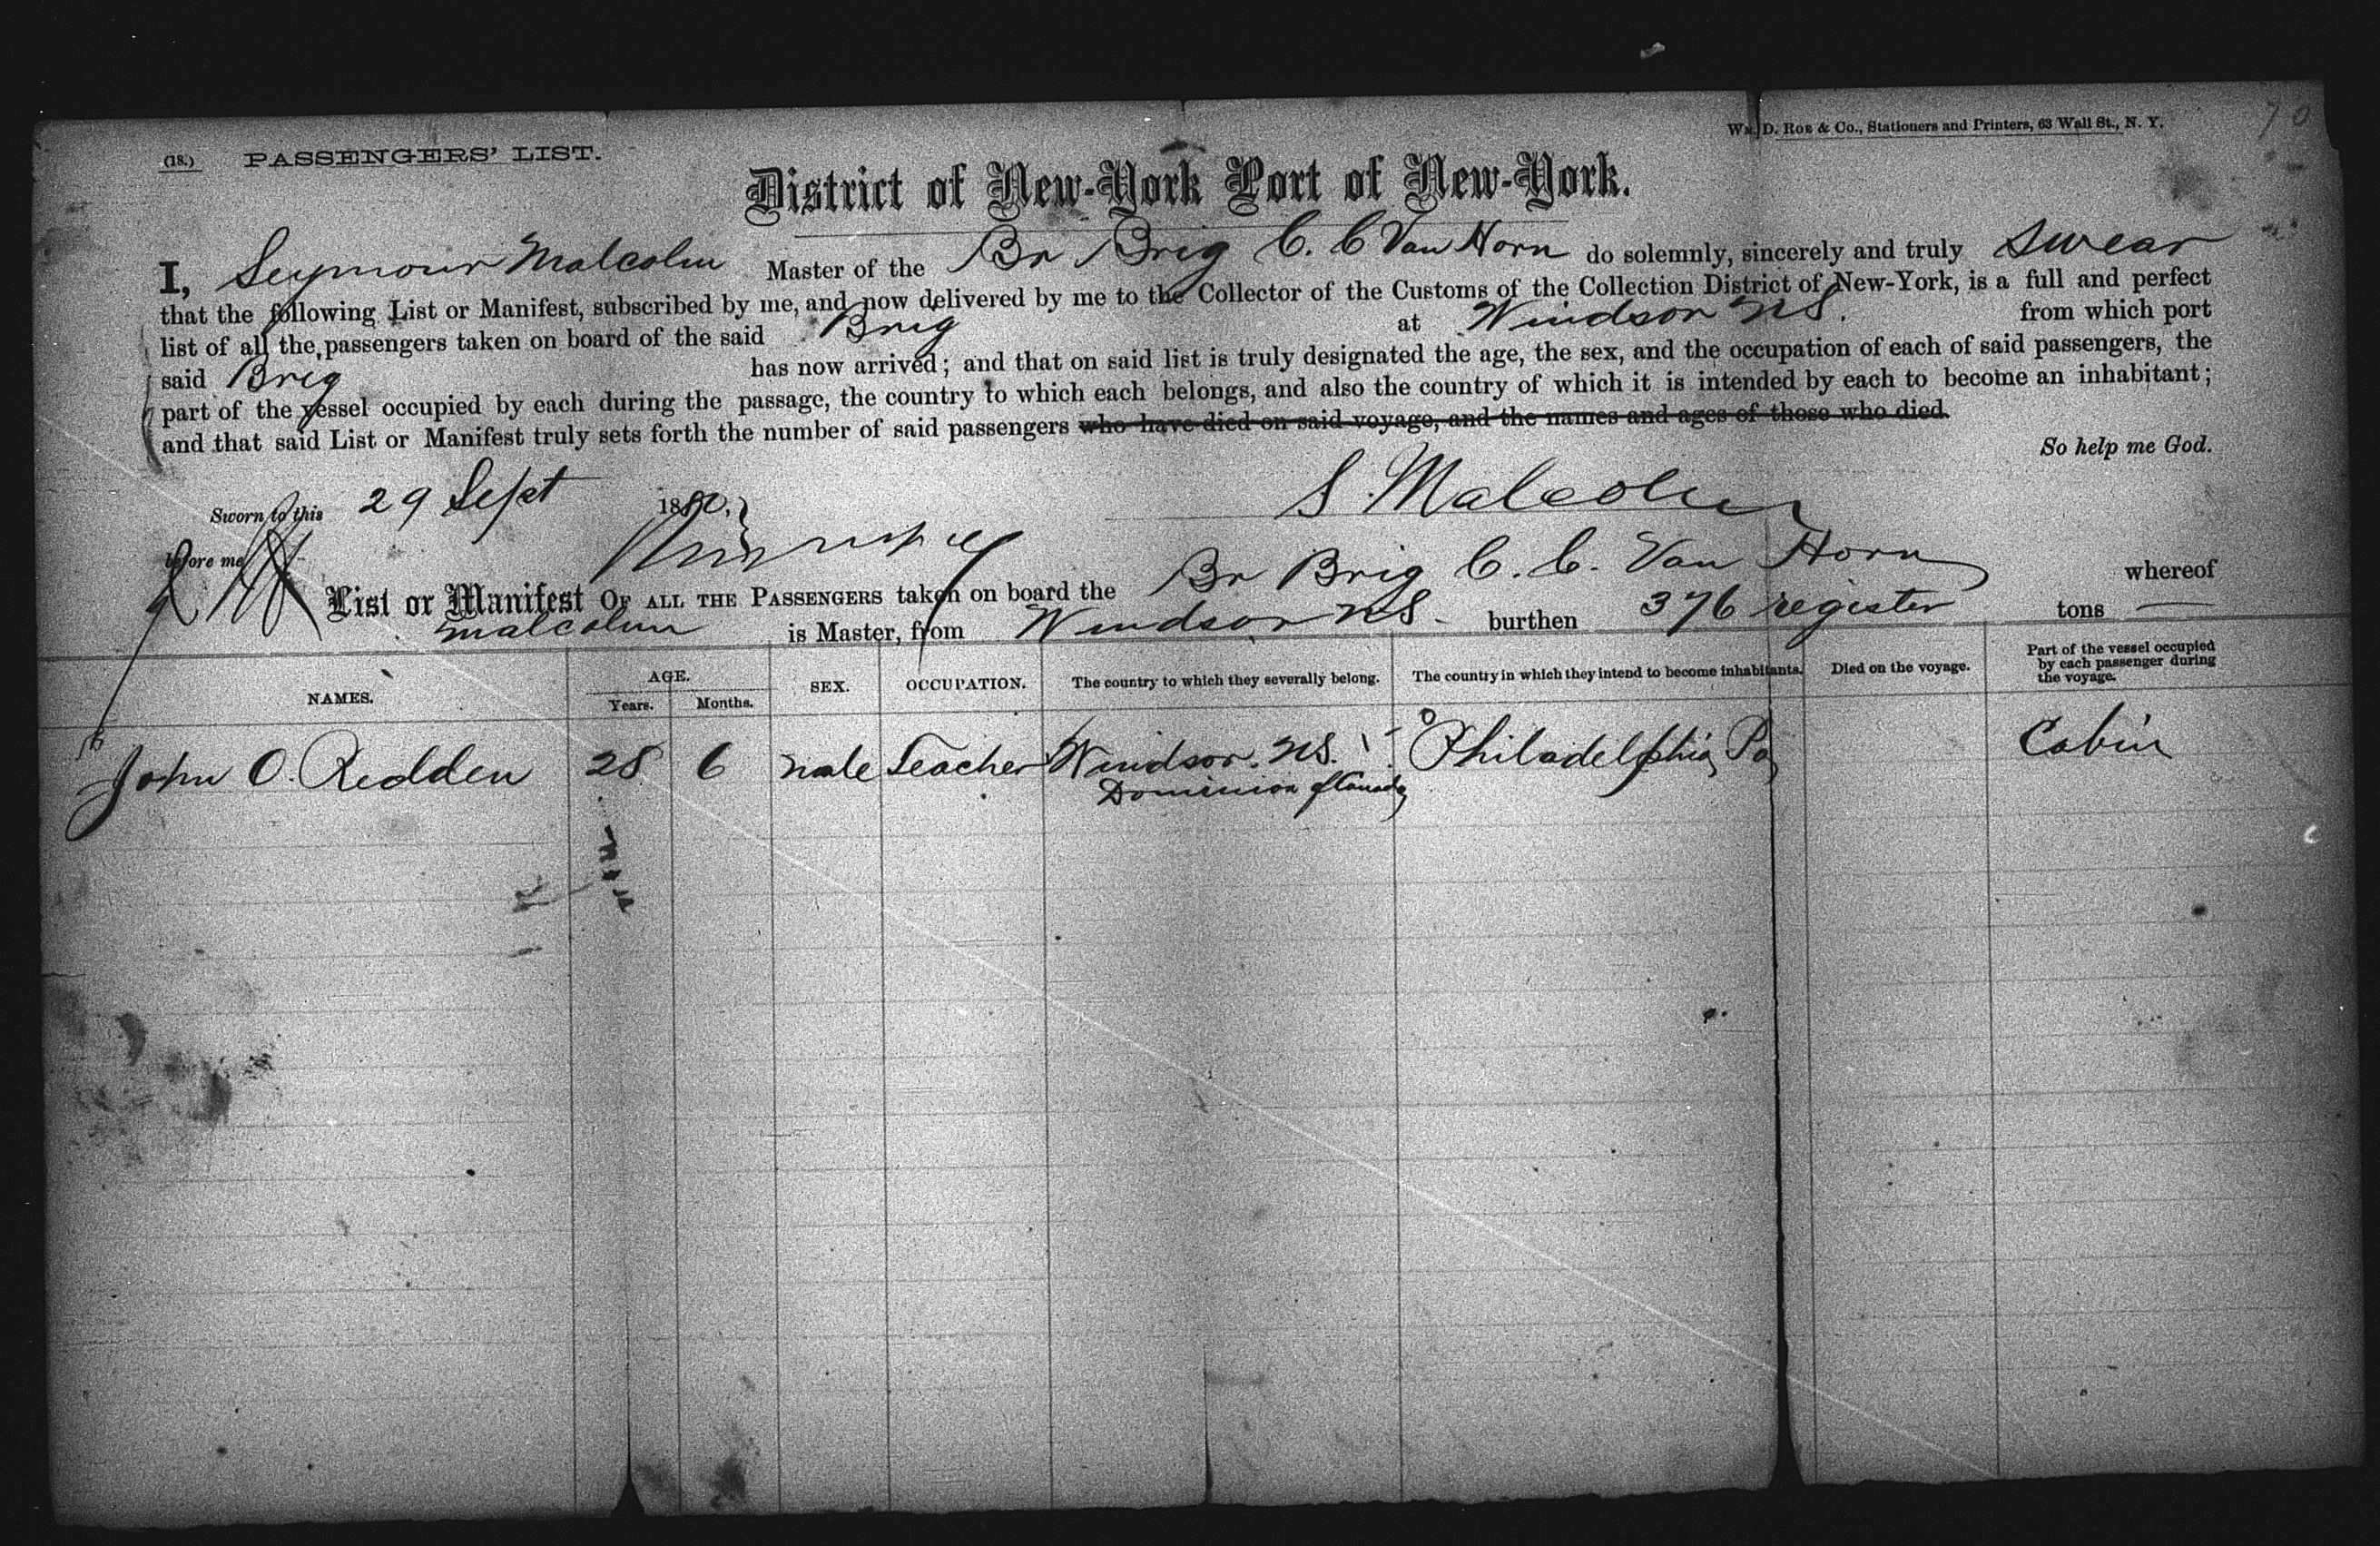 70
(18.) PASSENGERS' LIST. Wm. D. Roe & Co., Stationers and Printers, 63 Wall St., N. Y.
District of New-York Port of New-York.
I, Seymour Malcolm Master of the Br Brig C. C Van Horn do solemnly, sincerely and truly swear
that the following List or Manifest, subscribed by me, and now delivered by me to the Collector of the Customs of the Collection District of New-York, is a full and perfect
list of all the passengers taken on board of the said Brig at Windsor NS. from which port
said Brig has now arrived; and that on said list is truly designated the age, the sex, and the occupation of each of said passengers, the
part of the vessel occupied by each during the passage, the country to which each belongs, and also the country of which it is intended by each to become an inhabitant;
and that said List or Manifest truly sets forth the number of said passengers who have died on said voyage, and the names and ages of those who died.
So help me God.
Sworn to this 29 Sept 1880, S. Malcolm
before me
List or Manifest OF ALL THE PASSENGERS taken on board the Br Brig C. C. Van Horn whereof
Malcolm is Master, from Windsor NS. burthen 376 register tons
NAMES. AGE. Years. Months. SEX. OCCUPATION. The country to which they severally belong. The country in which they intend to become inhabitants. Died on the voyage. Part of the vessel occupied by each passenger during the voyage.
John O. Redden 28 6 male Teacher Windsor. NS. Philadelphia Pa Cabin
Dominion of Canada